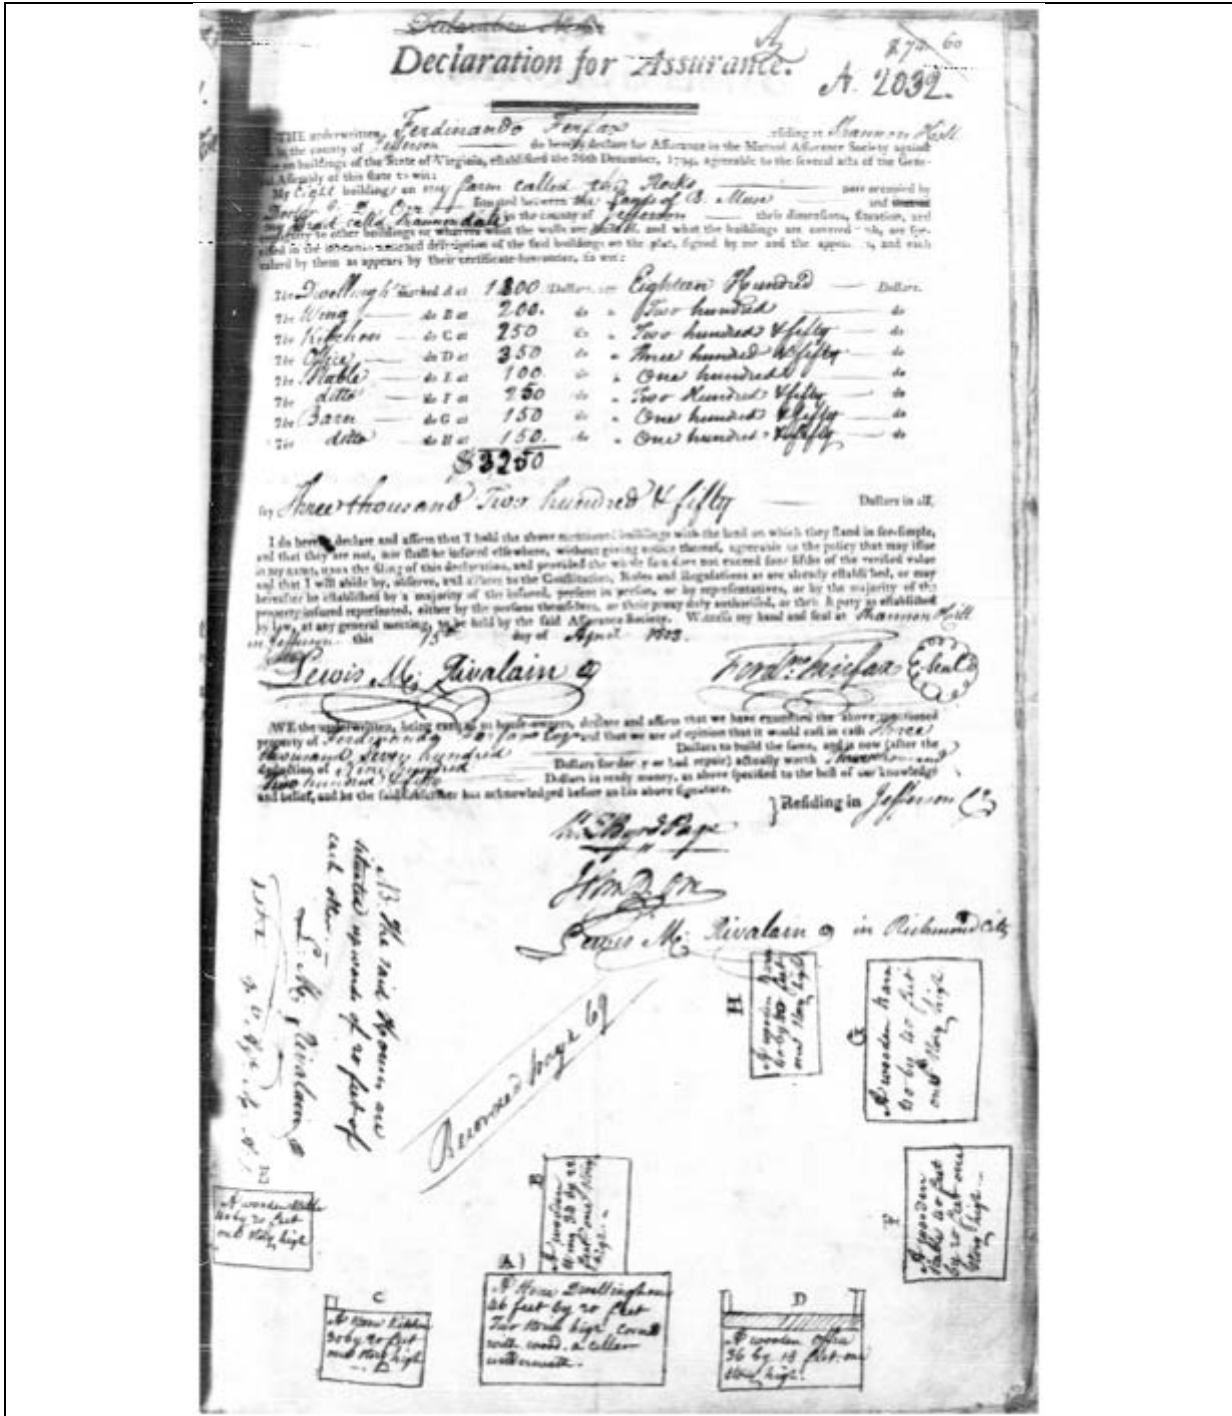 Declaration for Assurance.
A. 2032.
THE underwritten, Ferdinando Fairfax residing at Shannon Hill
in the county of Jefferson do hereby declare for Assurance in the Mutual Assurance Society against
Fire on buildings of the State of Virginia, established the 26th December, 1794, agreeable to the several acts of the Gene-
ral Assembly of this state to wit:
My Eight buildings on my farm called the Rocks now occupied by
situated between the of B. Muse and
my called Shannondale in the county of Jefferson their dimensions, situation, and
contiguity to other buildings or wharves what the walls are of, and what the buildings are covered with, are spe-
cified in the description of the said buildings on the plat, signed by me and the and each
valued by them as appears by their certificate hereunder, to wit:
The Dwellingh marked A at 1800 Dollars. say Eighteen Hundred Dollars.
The Wing do B at 200. do " Two hundred do
The Kitchen do C at 250 do " Two hundred & fifty do
The Office do D at 350 do " Three hundred & fifty do
The Stable do E at 100 do " One hundred do
The ditto do F at 250 do " Two Hundred & fifty do
The Barn do G at 150 do " One hundred & fifty do
The ditto do H at 150. do " One hundred & fifty do
$3250
say Three thousand Two hundred & fifty Dollars in all,
I do hereby declare and affirm that I hold the above mentioned buildings with the land on which they stand in fee-simple,
and that they are not, nor shall be insured elsewhere, without giving notice thereof, agreeable to the policy that may issue
in my name, upon the filing of this declaration, and provided the whole sum does not exceed four fifths of the verified value
and that I will abide by, observe, and adhere to the Constitution, Rules and Regulations as are already established, or may
hereafter be established by a majority of the insured, present in person, or by representatives, or by the majority of the
property insured represented, either by the persons themselves, or their proxy duly authorised, or their deputy as established
by law, at any general meeting, to be held by the said Assurance Society. Witness my hand and seal at Shannon Hill
in Jefferson this 15th day of April 1803.
Lewis M. Rivalain
Ferdno Fairfax
WE the underwritten, being each of us house-owners, declare and affirm that we have examined the above mentioned
property of Ferdinando Fairfax and that we are of opinion that it would cost in cash Three
thousand Seven hundred Dollars to build the same, and is now (after the
deduction of Dollars for decay or bad repair) actually worth Three thousand
Two hundred & fifty Dollars in ready money, as above specified to the best of our knowledge
and belief, and he the said subscriber has acknowledged before us his above signature.
Residing in Jefferson Co
Page
Lewis M. Rivalain in Richmond City
NB. The said Houses are
situated upwards of 20 feet of
each other.
L. M. Rivalain
Recorded page 69
H
A wooden Barn
by 20 feet
one Story high
G
A wooden Barn
by 20 feet
one Story high
F
A wooden
Stable 40 feet
by 20 feet one
Story high
E
A wooden Stable
by 20 feet
one Story high
B
A wooden
Wing by 22
feet one Story
high
A
A Dwellinghouse
46 feet by 20 feet
Two Stories high Cover'd
with wood. a cellar
underneath.
C
A Kitchen
30 by 20 feet
one Story high
D
A wooden office
36 by 18 feet one
Story high.